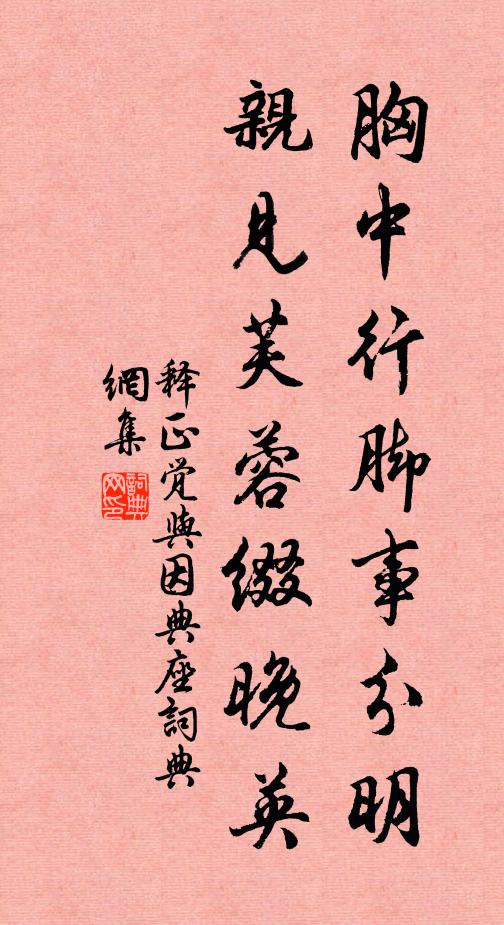 胸中行脚事分明
親見芙蓉綴晚英
释正觉與因典座詞典
網集
詞典网印